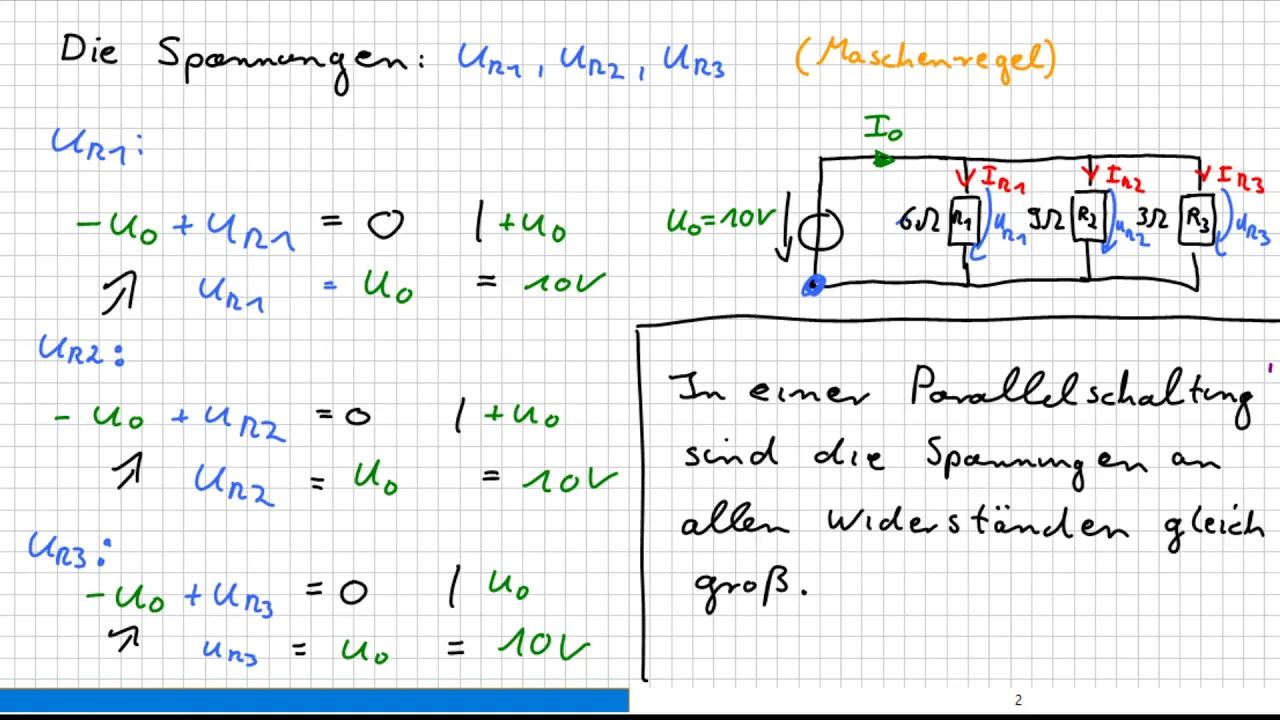 Die Spannungen: U_R1, U_R2, U_R3 (Maschenregel)
U_R1:
-U_0 + U_R1 = 0 | +U_0
U_R1 = U_0 = 10V
U_R2:
-U_0 + U_R2 = 0 | +U_0
U_R2 = U_0 = 10V
U_R3:
-U_0 + U_R3 = 0 | U_0
U_R3 = U_0 = 10V
I_0
I_R1 I_R2 I_R3
U_0=10V 6Ω R_1 U_R1 9Ω R_2 U_R2 3Ω R_3 U_R3
In einer Parallelschaltung
sind die Spannungen an
allen Widerständen gleich
groß.
2